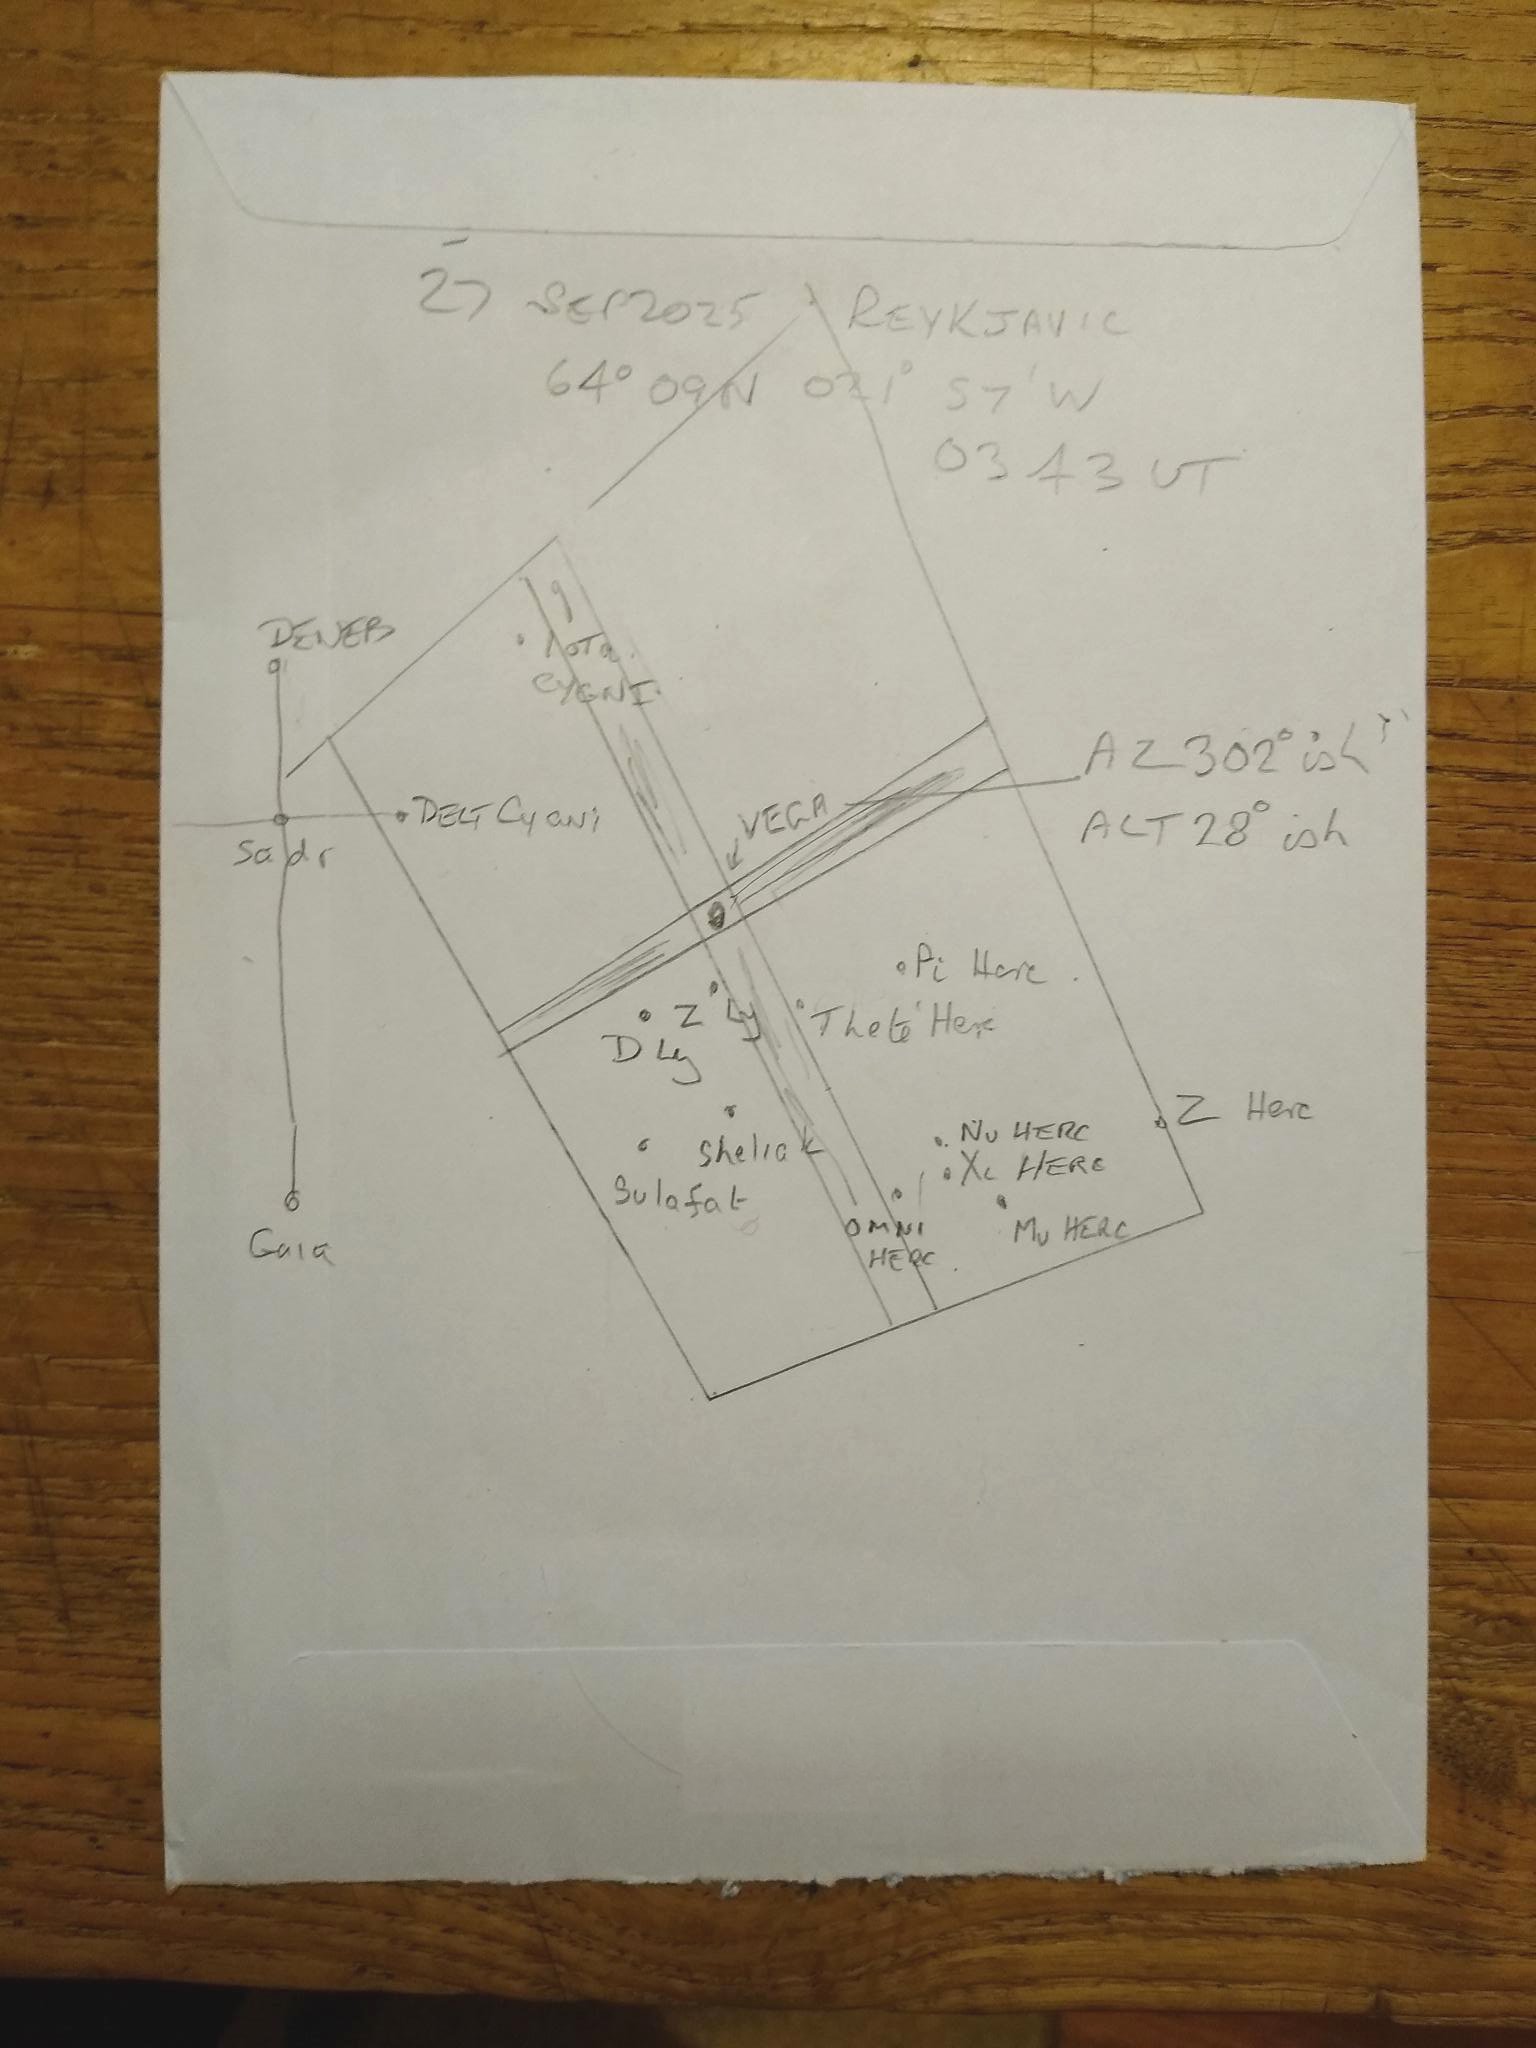 27 SEP 2025 REYKJAVIC
64° 09N 021° 57'W
0343 UT
DENEB
Iota
CYGNI
AZ 302° ish
VEGA
DELT Cygni
ALT 28° ish
Sadr
Pi Herc
Z Ly
Theta Herc
D Ly
Z Herc
Nu HERC
Sheliak
Xi HERC
Sulafat
OMNI
HERC
Mu HERC
Gaia